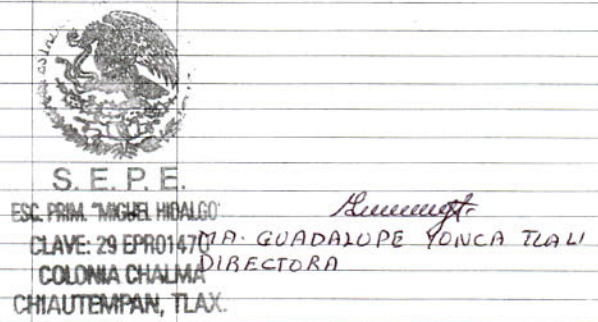 S. E. P. E.
ESC. PRIM. "MIGUEL HIDALGO"
CLAVE: 29 EPR0147O
COLONIA CHALMA
CHIAUTEMPAN, TLAX.
MA. GUADALUPE YONCA TLALI
DIRECTORA